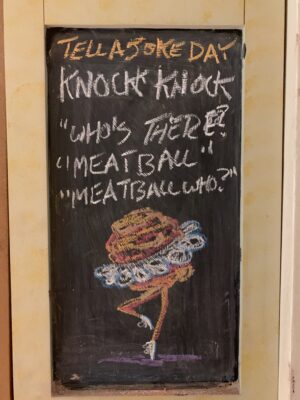 TELL A JOKE DAY
KNOCK KNOCK
"WHO'S THERE?
"MEATBALL"
"MEATBALL WHO?"